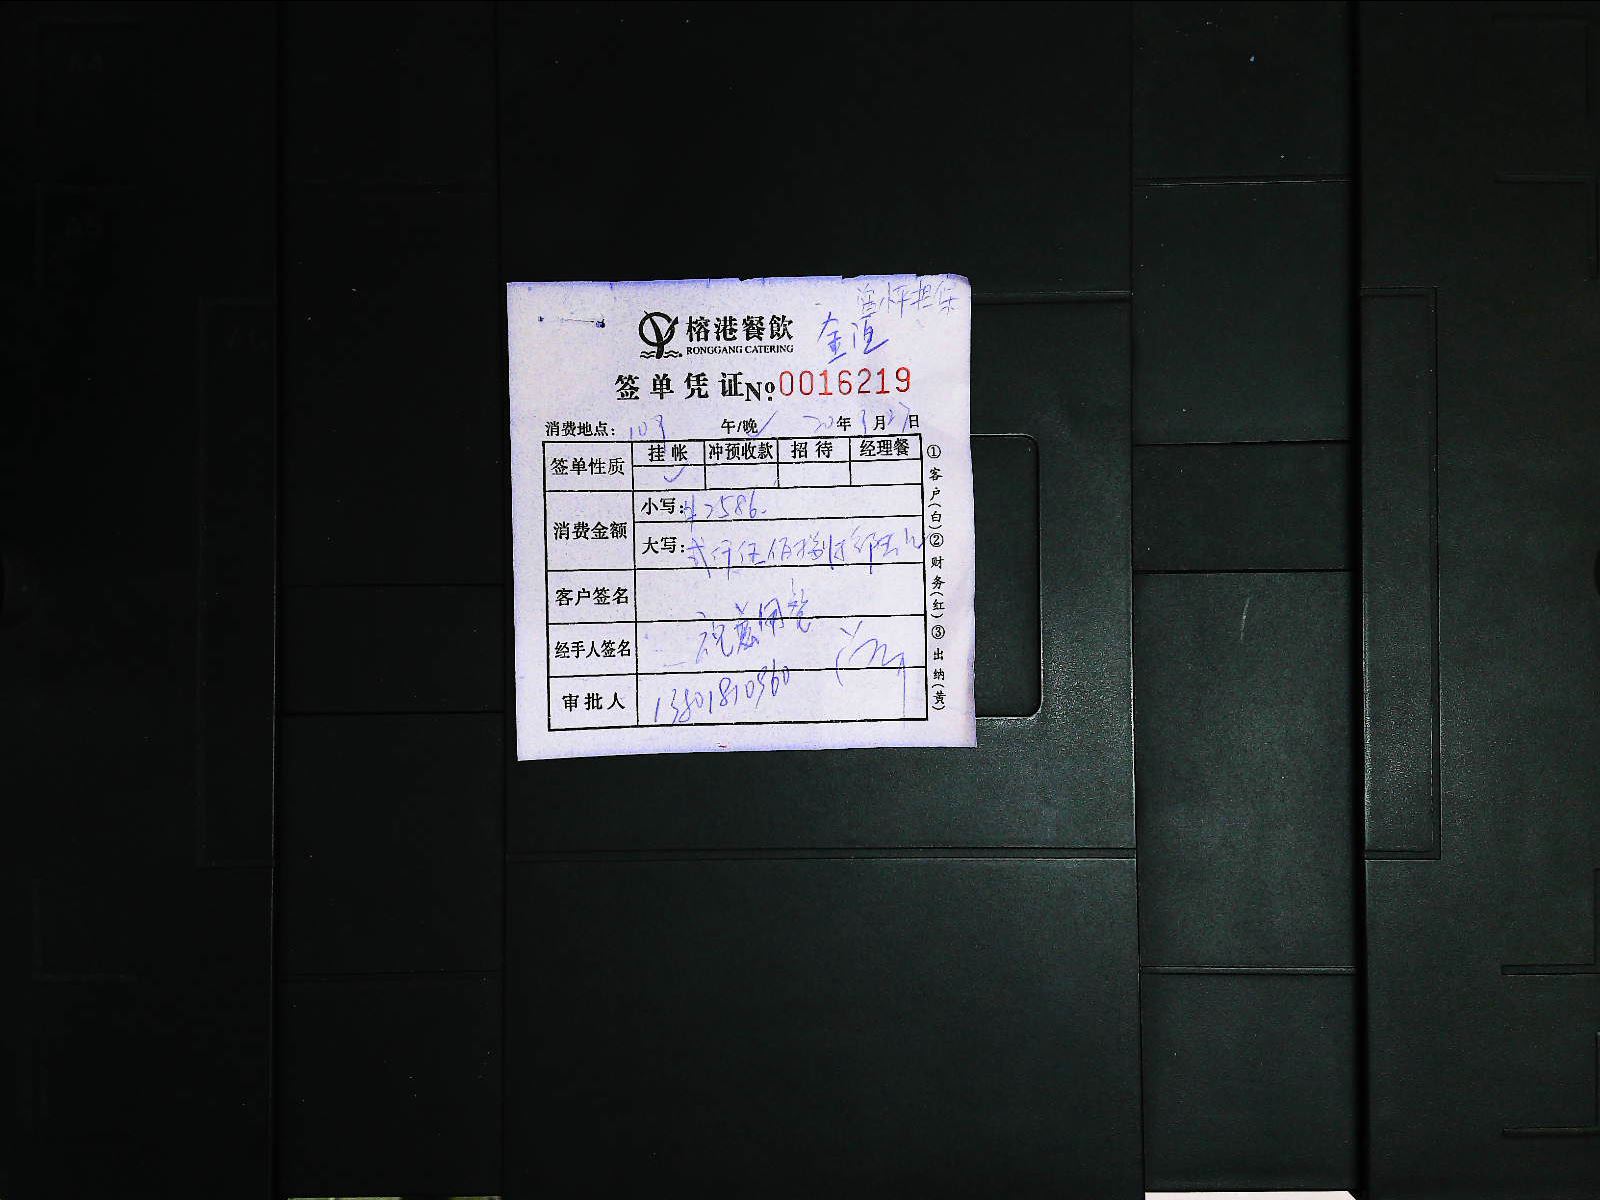 榕港餐飲
RONGGANG CATERING
签单凭证№0016219
消费地点: 109 午/晚✓ 20年 月27日
签单性质 挂帐 冲预收款 招待 经理餐
✓
消费金额 小写:¥2586.
大写:贰仟伍佰捌拾
客户签名
经手人签名
审批人 13801810560
①客户(白)②财务(红)③出纳(黄)